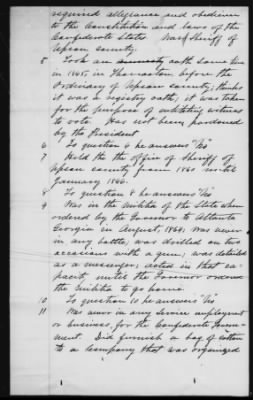 required allegiance and obedience
to the Constitution and laws of the
Confederate States Was Sheriff of
Upson county.
5 Took an amnesty oath some time
in 1865, in Thomaston before the
Ordinary of Upson county; thinks
it was a registry oath; it was taken
for the purpose of entitling witness
to vote. Has not been pardoned
by the President.
6 To question 6 he answers "No"
7 Held the the office of Sheriff of
Upson county from 1860 until
January 1866.
8 To question 8 he answers "No"
9 Was in the Militia of the State when
ordered by the Governor to Atlanta
Georgia in August, 1864; was never
in any battle; was drilled on two
occasions with a gun; was detailed
as a messenger; acted in that ca-
pacity until the Governor ordered
the Militia to go home.
10 To question 10 he answers "No"
11 Was never in any service employment
or business, for the Confederate Govern-
ment. Did furnish a bag of cotton
to a company that was organized